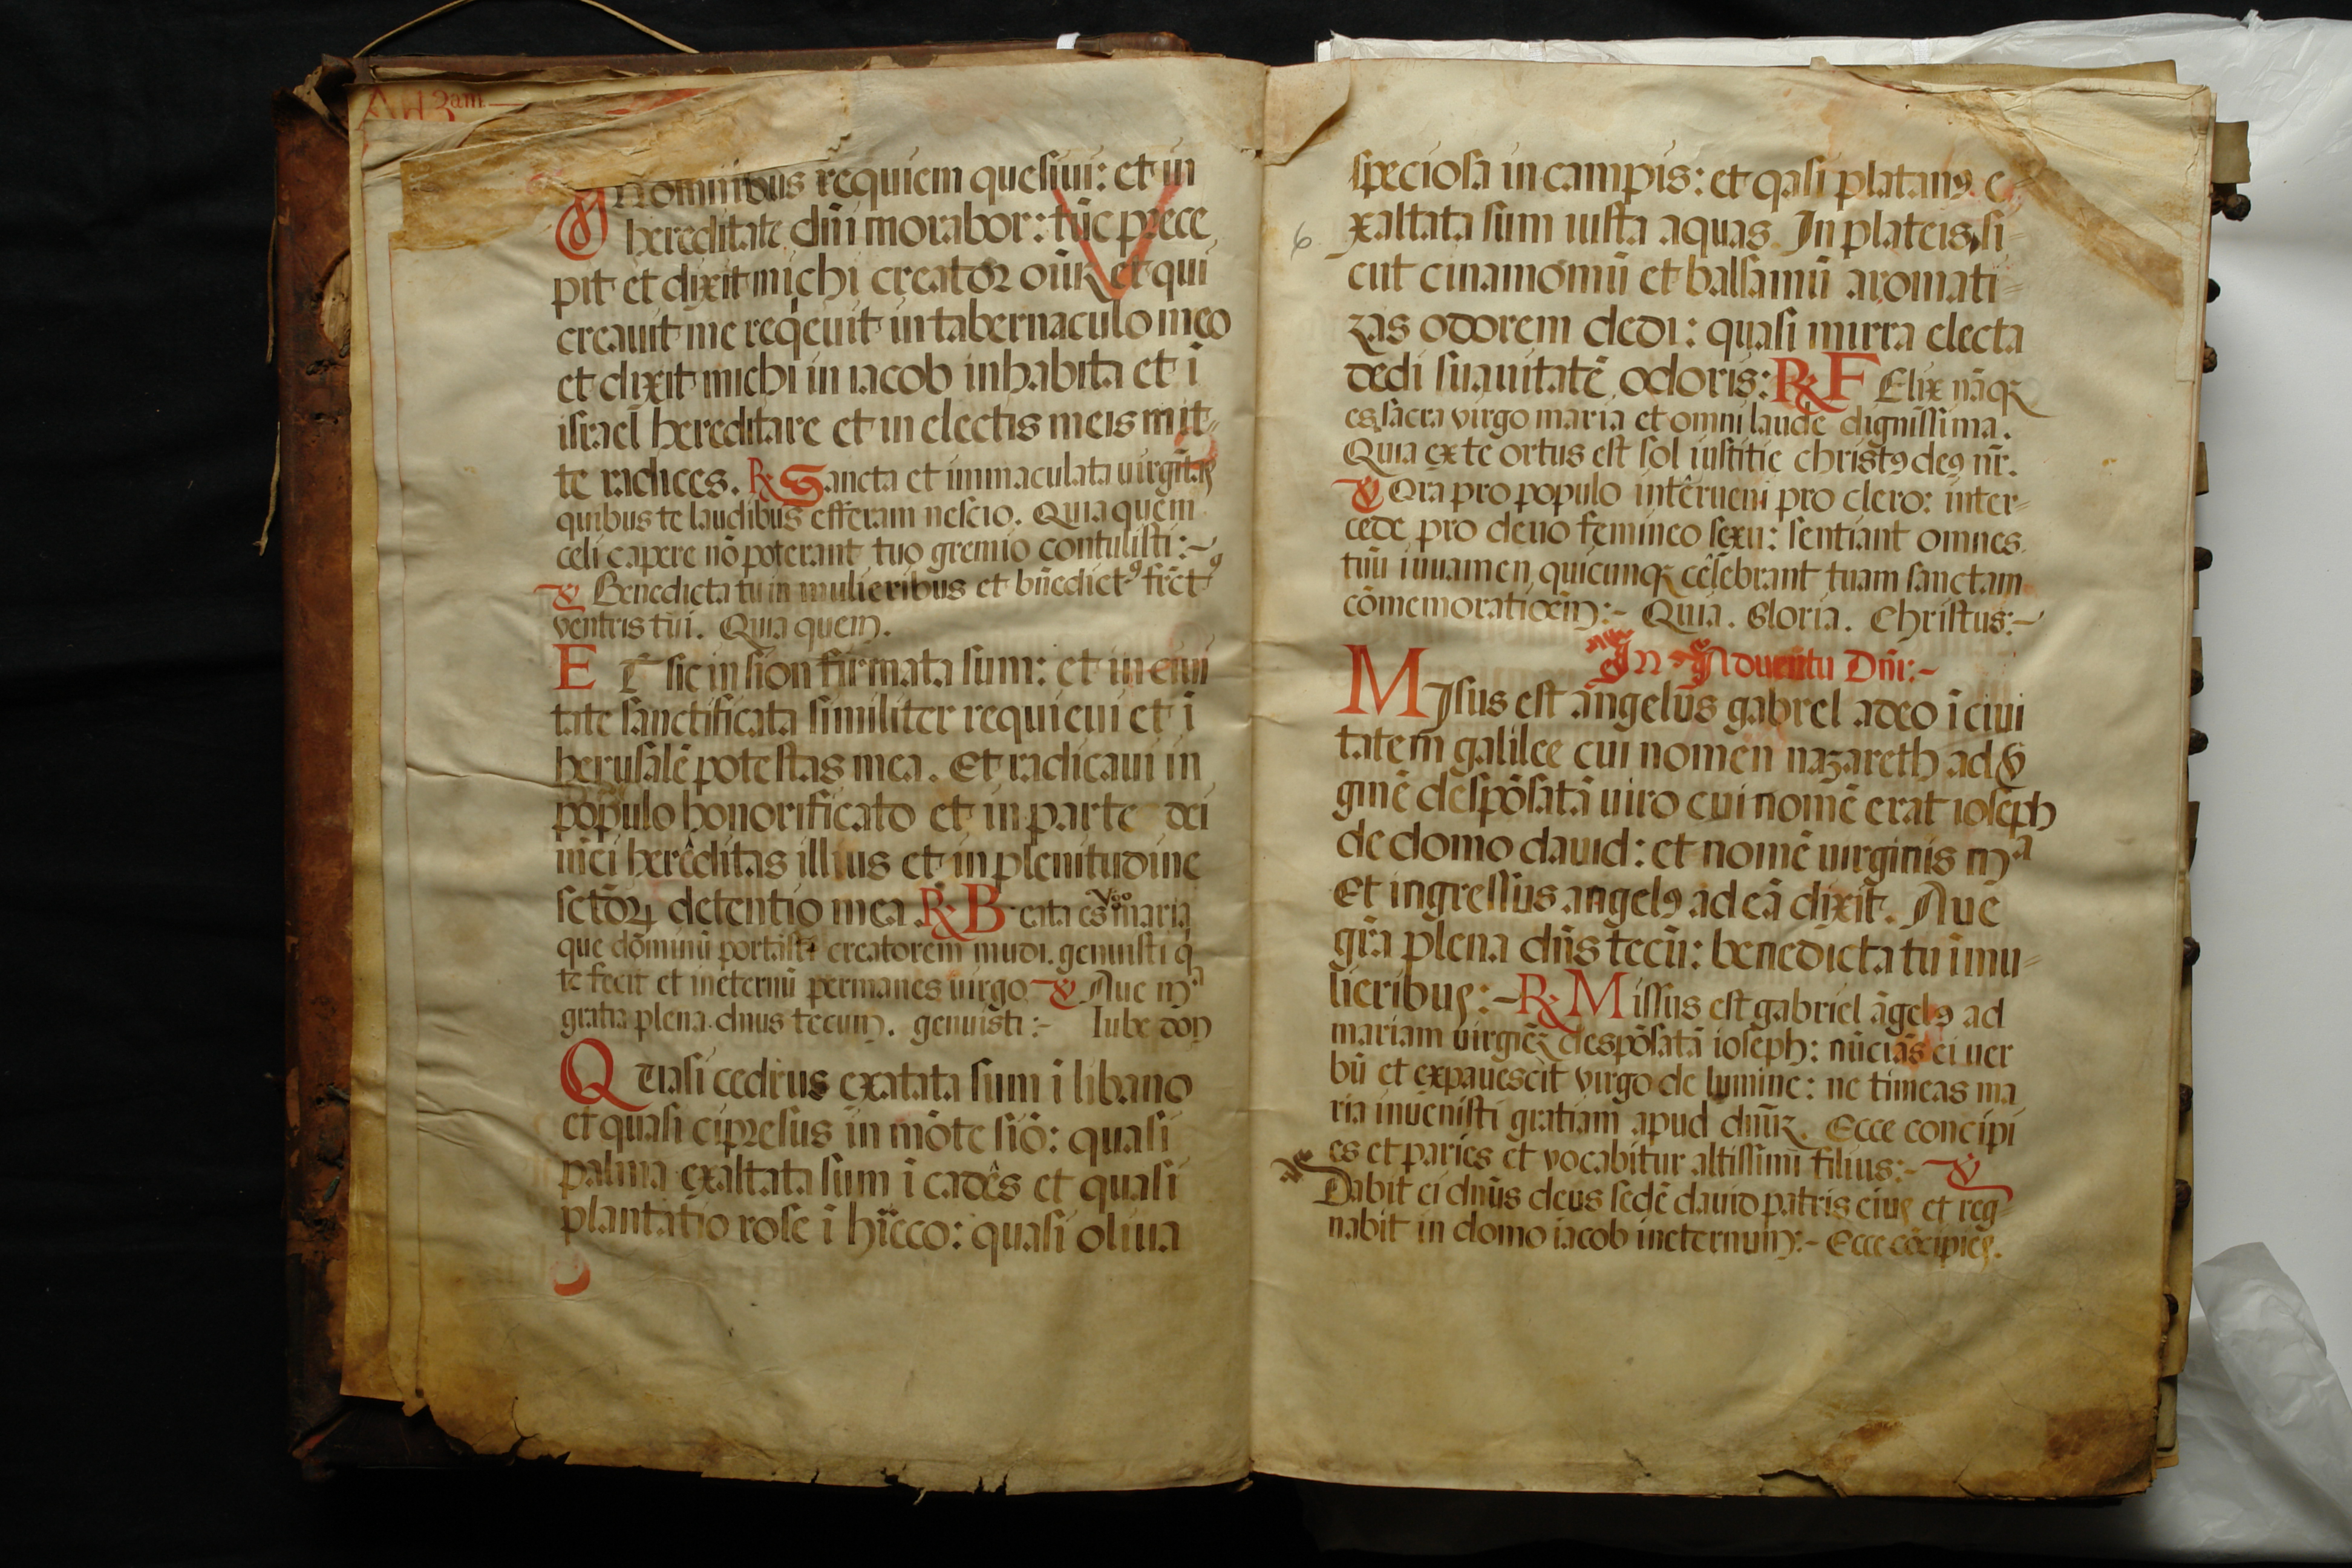 Ad 3am
In omnibus requiem quesiui: et in
hereditate dñi morabor: tūc prece
pit et dixit michi creator oīuꝝ et qui
creauit me reqͥeuit in tabernaculo meo
et dixit michi in iacob inhabita et ī
israel̄ hereditare et in electis meis mit-
te radices. ℟ Sancta et immaculata uirgītas
quibus te laudibus efferam nescio. Quia quem
celi capere nō poterant tuo gremio contulisti:~
℣ Benedicta tu in mulieribus et bñedictꝰ frctꝰ
ventris tui. Quia quem.
ET sic in sion firmata sum: et in ciui
tate sanctificata similiter requieui et ī
herusalē potestas mea. Et radicaui in
populo honorificato et in parte dei
mei herēditas illius et in plenitudine
sctōꝝ detentio mea ℟ Beata es Vgo maria
que dōminū portasti creatorem mūdi. genuisti qͥ
te fecit et ineternū permanes uirgo ℣ Aue mᵃ
gratia plena dñus tecum. genuisti:- Iube don
Quasi cedrus exatata sum ī libano
et quasi cipresus in mōte siō: quasi
palma exaltata sum ī cadēs et quasi
plantatio rose ī hiecco: quasi oliua
speciosa in campis: et qasi platanꝰ e-
6
xaltata sum iusta aquas In plateis, si
cut cinamomū et balsamū aromati-
zās odorem dedi: quasi mirra electa
dedi suauitatē odoris: ℟ Felix nāqꝫ
es sacra virgo maria et omni laude dignissima.
Quia ex te ortus est sol iustitie christꝰ deꝰ nr̄.
℣ Ora pro populo intērueni pro clero: inter-
cede pro deuo femineo sexu: sentiant omnes
tuū iuuamen quicunqꝫ cēlebrant tuam sanctam
cōmemoratioēm:- Quia. Gloria. Christus:~
In Aduentu Dñi:-
MIsus est āngelus gabrel adeo ī ciui
tatem galilee cui nomen nazareth ad ℣
ginē despōsatā uiro cui nomē erat ioseph
de domo dauid: et nomē uirginis mᵃ
Et ingressus angelꝰ ad eā dixit. Aue
grā plena dñs tecū: benedicta tu ī mu-
lieribus:- ℟ Missus est gabriel āgelꝰ ad
mariam uirgiēꝫ despōsatā ioseph: nūciās ei uer
bū et expauescit virgo de lumine: ne timeas ma
ria inuenisti gratiam apud dñūꝫ. Ecce concipi
es et paries et vocabitur altissimi filius:- ℣
Dabit ei dñus deus sedē dauid patris eius et reg-
nabit in domo iacob ineternum:- Ecce cōcipies.